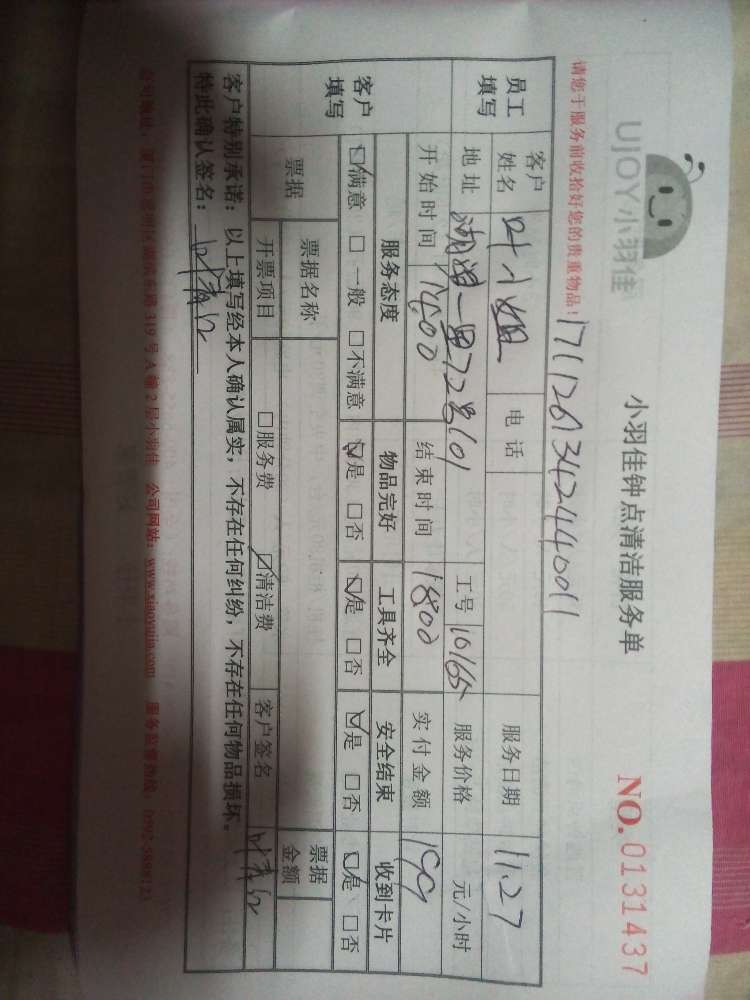 UJOY小羽佳
小羽佳钟点清洁服务单
NO.0131437
请您于服务前收拾好您的贵重物品!
17112613424440011
员工填写
客户姓名 叶小姐 电话 服务日期 11.27
地址 湖滨一里72号101 工号 10165 服务价格 元/小时
开始时间 14:00 结束时间 1800 实付金额 199
客户填写
服务态度 物品完好 工具齐全 安全结束 收到卡片
☑满意 □一般 □不满意 ☑是 □否 ☑是 □否 ☑是 □否 ☑是 □否
票据 票据名称 票据金额
开票项目 □服务费 ☑清洁费 客户签名
客户特别承诺:以上填写经本人确认属实,不存在任何纠纷,不存在任何物品损坏。
特此确认签名:
319号A幢2层小羽佳 公司网站:www.xiaoyujia.com 服务监督热线:0592-5899123